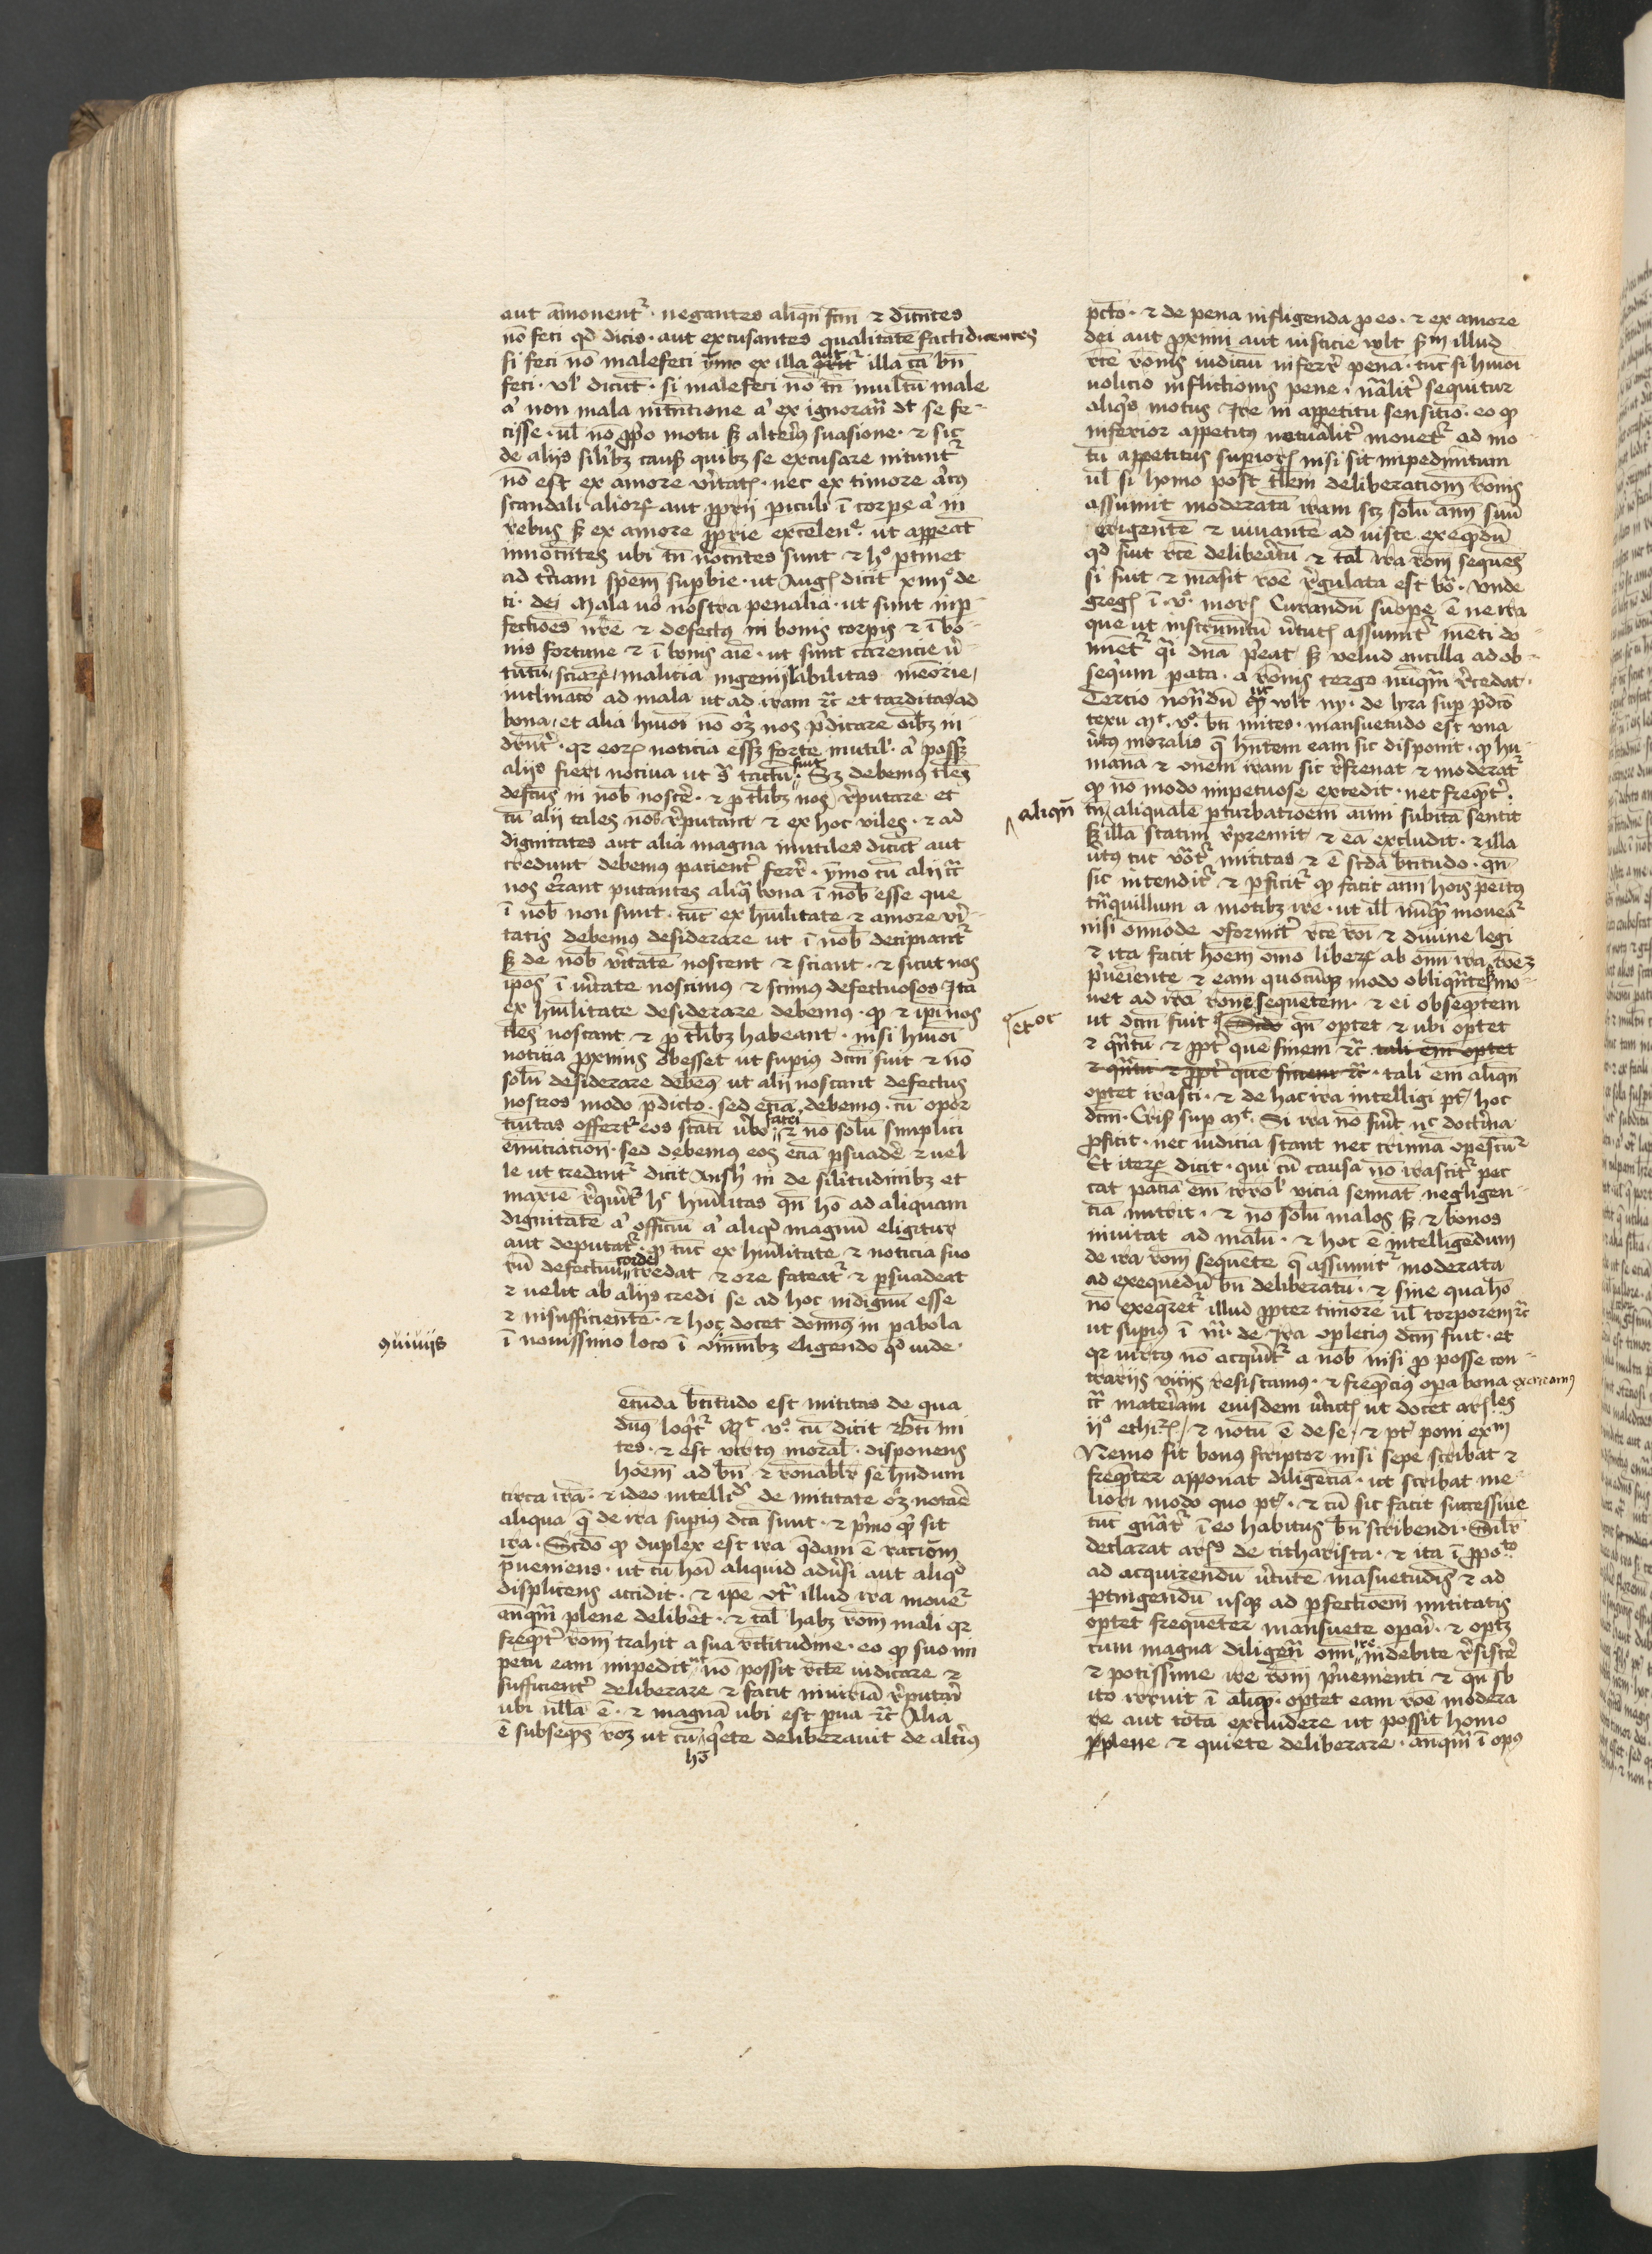 aut āmonent᷑ · negantes aliqn̄ fcm̄ ⁊ dicn̄tes
nō feci qd dicis · aut excusantes qualitatē facti dicentes
si feci nō malefeci ymo ex illa illa cā bn̄
feci · vl' dicūt · si malefeci nō tn̄ multū male
a' non mala intn̄tione a' ex ignoran̄ dt se fe-
cisse · ul' nō ꝓprio motu sꝫ alteriꝰ suasione · ⁊ sic
de aliis silibꝫ causis quibꝫ se excusare nitunt᷑
nō est ex amore v'itatꝭ · nec ex timore
scandali alioꝝ aut ꝓprij piculi ī corpe a' in
rebus sꝫ ex amore ꝓprie excelen̄ · ut appeāt
innocn̄tes ubi tn̄ nocn̄tes sunt ⁊ hº ptinet
ad tciam spem̄ supbie · ut Augꝰ dicit xiiijº de
ci · dei Mala uº nostra penalia · ut sunt inp-
fectiōes nr̄e ⁊ defectus in bonis corpis ⁊ ī bo-
nis fortune ⁊ ī bonis aīe · ut sunt carencie v'-
tutū / sciaꝝ / malicia ingenij labilitas meōrie /
inclinacō ad mala ut ad iram ⁊c̄ et tarditas ad
bona · et alia hmōi nō oꝫ nos p̄dicare oībꝫ in
dr̄nt' · qꝛ eoꝝ noticia essꝫ forte inutil' · a' possꝫ
aliis fieri nociua ut sᵃ tactū fuit · Sꝫ debemꝰ tl̄es
defctus in nob noscē · ⁊ ꝑ tl̄ibꝫ nos r̄putare et
cū alij tales nos r̄putant ⁊ ex hoc viles · ⁊ ad
dignitates aut alia magna inutiles dicūt aut
credunt debemus pacient' ferr' · ymo cū alij c̄
nos errant putantes aliqᵃ bona ī nob esse que
ī nob non sunt · tūc ex hūilitate ⁊ amore v'i-
tatis debemus desiderare ut ī nob decipiant᷑
sꝫ de nob v'itatē noscent ⁊ sciant · ⁊ sicut nos
ipos ī v'itate noscimꝰ ⁊ scimꝰ defectuosos Ita
ex hūilitate desiderare debemus · ꝙ ⁊ ipī nos
tl̄es noscant ⁊ ꝑ tl̄ibꝫ habeant · nisi hmōi
noticia ꝓximis obesset ut supius dc̄m fuit ⁊ nō
solū desiderare debemꝰ ut alij noscant defectus
nostros modo p̄dicto · sed eciā debemus · cū opor
tunitas offert᷑ eos fateri ⁊ nō solū simplici
enuciacōn · sed debemus eos eciā psuadē ⁊ uel
le ut credant᷑ dicit Anshꝰ in de silitudinibꝫ et
maxīe r̄qui't᷑ hᶜ hūilitas qn̄ hō ad aliquam
dignitatē a' officiū a' aliqᵈ magnū eligitur
aut deputat᷑ · ꝙ tūc ex hūilitate ⁊ noticia suo
rū defectuū corde credat ⁊ ore fateat᷑ ⁊ psuadeat
⁊ uelit ab aliis credi se ad hoc indignū esse
⁊ insufficientē · ⁊ hoc docet dominꝰ in pabola
ī nouissimo loco ī eligendo qᵈ uide ·
ꝯuiuijs
ecūda btitudo est mititas de qua
dn̄s loqt᷑ Mᵗ vº cū dicit Bti mi
tes · ⁊ est virtꝰ moral' · disponens
hoem̄ ad bn̄ ⁊ rōnablr̄ se hn̄dum
circa irā · ⁊ ideo intelligᵈ de mititate oꝫ notaē
aliqua q̄ de ira supius dcā sunt · ⁊ p'mo qᵈ sit
ira · Scdo ꝙ duplex est ira q̄dam ē racōm
p̄ueniens · ut cū hoi aliquid adūsi aut aliqᵈ
displicens accidit · ⁊ ipē ꝯtᵃ illud ira mouet᷑
anqm̄ plene delibēt · ⁊ tal' habꝫ rōm mali qꝛ
freqnt' rōm trahit a sua rctitudine · eo ꝙ suo im
petu eam impedit ut nō possit rcte iudicare ⁊
sufficient' deliberare ⁊ facit iniuriā r̄putari
ubi nll̄a ē · ⁊ magnā ubi est pua ⁊c̄ Alia
ē subseqn̄s rōꝫ ut cū hō qete deliberauit de altiꝰ
pctō · ⁊ de pena infligenda ꝓ eo · ⁊ ex amore
dei aut ꝓximi aut iusticie vlt scdm illud
rcte rōnis iudiciū inferr' penā · tūc si hmōi
uolicio inflictionis pene · nālit' sequitur
aliqis motus ire in appetitu sensitiō · eo ꝙ
inferior appetitꝰ naturalit' mouet᷑ ad mo-
tū appetitus supioris nisi sit impedimtum
ul' si homo post tl̄em deliberacōm rōnis
assumit moderatā iram scꝫ solū aīm suū
erigentē ⁊ iuuantē ad iuste exeqndū
qd fuit rcte delibeatū ⁊ tal' ira rōm sequēs
si fuit ⁊ māsit rōe r̄gulata est bōa · Vnde
gregꝰ ī vº · morꝭ Curandū sūope ē ne ira
que ut instrumtū v'tutꝭ assumit᷑ mēti do
minet᷑ qᵃi dn̄a p'eat sꝫ velud ancilla ad ob-
sequm pata · a rōnis tergo nūqm̄ r̄cedat ·
Tercio notandū ꝙ ut vlt ny · de lyra sup p̄dco
textu Mᵗ · vº · bti mites · mansuetudo est vna
v'tus moralis q̄ hn̄tem eam sic disponit · ꝙ hu-
mana ⁊ oīnem iram sic r̄frenat ⁊ moderat᷑
ꝙ nō modo impetuose excedit · nec freqnt' ·
aliqn̄
tn̄ aliqualē pturbatioēm animi subitā sentit
sꝫ illā statim r̄premit ⁊ eā excludit · ⁊ illa
v'tꝰ tūc vocat᷑ mititas ⁊ ē scda btitudo · qn̄
sic intendit᷑ ⁊ pficit᷑ ꝙ facit aīm hoīs penitꝰ
tnquillum a motibꝫ ire · ut illo nūqᵃ moueat᷑
nisi ōnmode ꝯformit' rcte rōi ⁊ diuine legi
⁊ ita facit hoem̄ omō liberꝝ ab oīni ira rōeꝫ
p'uēiente ⁊ eam quocūqꝫ modo obliqntē mo-
uet ad irā rōnē sequentem · ⁊ ei obseqntem
et oc
ut dcm̄ fuit qn̄ optet ⁊ ubi optet
⁊ qn̄tū ⁊ ꝓpt' quē finem ⁊c̄ tali em̄ optet
⁊ qn̄tū ⁊ ꝓpt' quē finem ⁊c̄ · tali em̄ aliqn̄
optet irasci · ⁊ de hac ira intelligi pt / hoc
dcm̄ · Cris sup Mᵗ · Si ira nō fuit nᶜ doctrina
proficit · nec iudicia stant nec crimina ꝯpescūt᷑
Et iterꝝ dicit · qui cū causa nō irascit᷑ pec
cat paciā em̄ irrōl' vicia seminat negligen-
ciā nutrit · ⁊ nō solū malos sꝫ ⁊ bonos
inuitat ad malū · ⁊ hoc ē intelligendum
de ira rōm sequēte q̄ assumit᷑ moderata
ad exequendū bn̄ deliberatū · ⁊ sine qua hō
nō exequet᷑ illud ꝓpter timorē ul' torporem ⁊c̄
ut supius ī de Ira ꝯplecius dcm̄ fuit · et
qꝛ virtꝰ nō acqui't᷑ a nob nisi ꝓ posse con-
trariis viciis resistamus · ⁊ freqnciꝰ opa bona exceamꝰ
cᵃ materiam eiusdem v'tutꝭ ut docet arsles
ijº ethicoꝝ / ⁊ notū ē de se / ⁊ pt poni exᵐ
Nemo fit bonus scriptor nisi sepe scribat ⁊
freqnter apponat diligencia · ut scribat me-
liori modo quo pt · ⁊ cū sic facit successiue
tūc gnat᷑ ī eo habitus bn̄ scribendi · Silr
declarat arsˢ de citharista · ⁊ ita ī ꝓpoᵗᵒ
ad acquirendū v'tutē māsuetudīs ⁊ ad
ptingendū usqꝫ ad pfectioēm mititatis
optet frequenter mansuete opari · ⁊ optꝫ
cum magna diligen̄ omī ire indebite r̄sistē
⁊ potissime ire rōm p'uenienti ⁊ qn̄ sb
ito irruit ī aliqm · optet eam rōe modera
re aut totā excludere ut possit homo
plene ⁊ quiete deliberare · anqm̄ ī opꝰ